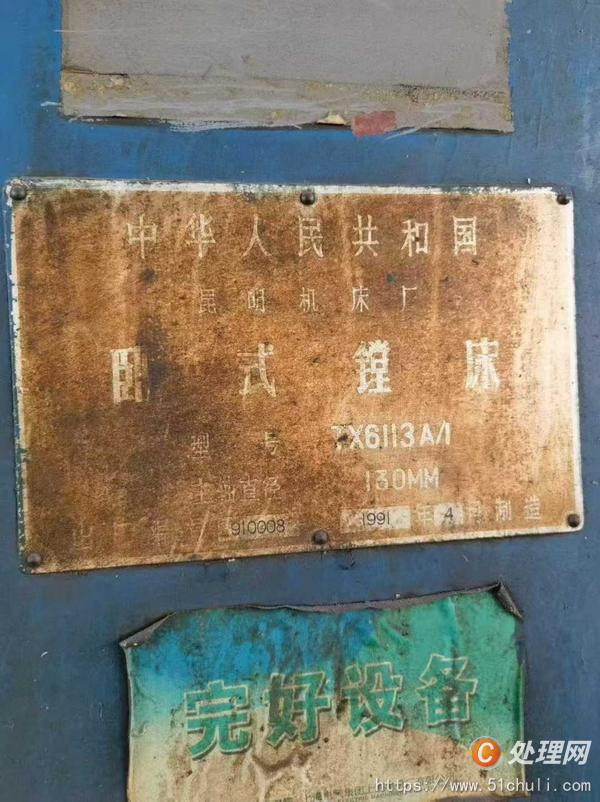 中华人民共和国
昆明机床厂
卧式镗床
型号 TX6113A/1
主轴直径 130MM
910008 1991年4月制造
完好设备
处理网
https://www.51chuli.com/